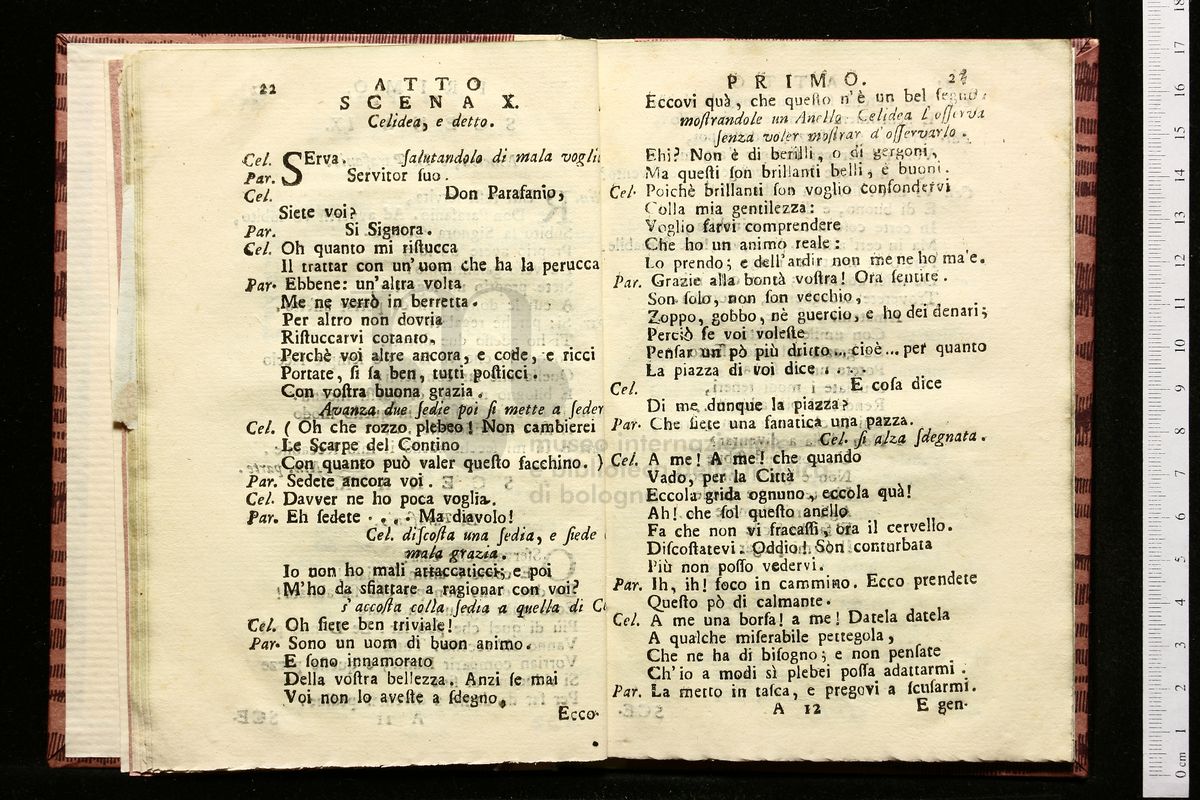 22 ATTO
SCENA X.
Celidea, e detto.
Cel. SErva. salutandolo di mala vogli
Par. Servitor suo.
Cel. Don Parasanio,
Siete voi?
Par. Si Signora.
Cel. Oh quanto mi ristucca
Il trattar con un'uom che ha la perucca
Par. Ebbene: un'altra volta
Me ne verrò in berretta.
Per altro non dovria
Ristuccarvi cotanto,
Perchè voi altre ancora, e code, e ricci
Portate, si sa ben, tutti posticci.
Con vostra buona grazia.
Avanza due sedie poi si mette a seder
Cel. ( Oh che rozzo plebeo! Non cambierei
Le Scarpe del Contino
Con quanto può valer questo facchino. )
Par. Sedete ancora voi.
Cel. Davver ne ho poca voglia.
Par. Eh sedete .... Ma diavolo!
Cel. discosta una sedia, e siede
mala grazia.
Io non ho mali attaccaticci; e poi
M'ho da sfiattare a ragionar con voi?
s'accosta colla sedia a quella di C
Cel. Oh siete ben triviale!
Par. Sono un uom di buon animo.
E sono innamorato
Della vostra bellezza. Anzi se mai
Voi non lo aveste a sdegno,
Ecco-
PRIMO.
Eccovi quà, che questo n'è un bel segno:
mostrandole un Anello. Celidea l'osserva
senza voler mostrar d'osservarlo.
Ehi? Non è di berilli, o di gergoni,
Ma questi son brillanti belli, e buoni.
Cel. Poichè brillanti son voglio confondervi
Colla mia gentilezza:
Voglio farvi comprendere
Che ho un animo reale:
Lo prendo; e dell'ardir non me ne ho ma'e.
Par. Grazie alla bontà vostra! Ora sentite.
Son solo, non son vecchio,
Zoppo, gobbo, nè guercio, e ho dei denari;
Perciò se voi voleste
Pensar un pò più dritto... cioè... per quanto
La piazza di voi dice ....
Cel. E cosa dice
Di me dunque la piazza?
Par. Che siete una fanatica una pazza.
Cel. si alza sdegnata.
Cel. A me! A me! che quando
Vado, per la Città
Eccola grida ognuno, eccola quà!
Ah! che sol questo anello
Fa che non vi fracassi, ora il cervello.
Discostatevi. Oddio! Son conturbata
Più non posso vedervi.
Par. Ih, ih! foco in cammino. Ecco prendete
Questo pò di calmante.
Cel. A me una borsa! a me! Datela datela
A qualche miserabile pettegola,
Che ne ha di bisogno; e non pensate
Ch'io a modi sì plebei possa adattarmi.
Par. La metto in tasca, e pregovi a scusarmi.
A 12 E gen-
museo interna
di bologn
0 cm 1 2 3 4 5 6 7 8 9 10 11 12 13 14 15 16 17 18